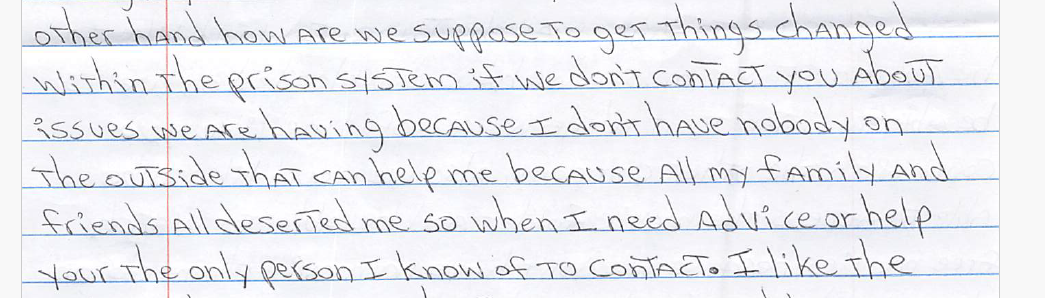 other hand how Are we suppose To get Things changed
Within The prison system if we don't contact you About
issues we Are having because I don't have nobody on
The outside That can help me because All my family And
friends All deserted me so when I need Advice or help
your The only person I know of To contact. I like The